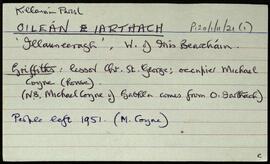 Killannin Parish
OILEÁN IARTHACH P120/1/1/21 (1)
'Illauneeragh', W. of Inis Bearachain.
Griffiths: lessor Chr. St. George; occupier Michael
Coyne (house)
(NB. Michael Coyne of comes from O. Iarthach)
People left 1951. (M. Coyne)
c